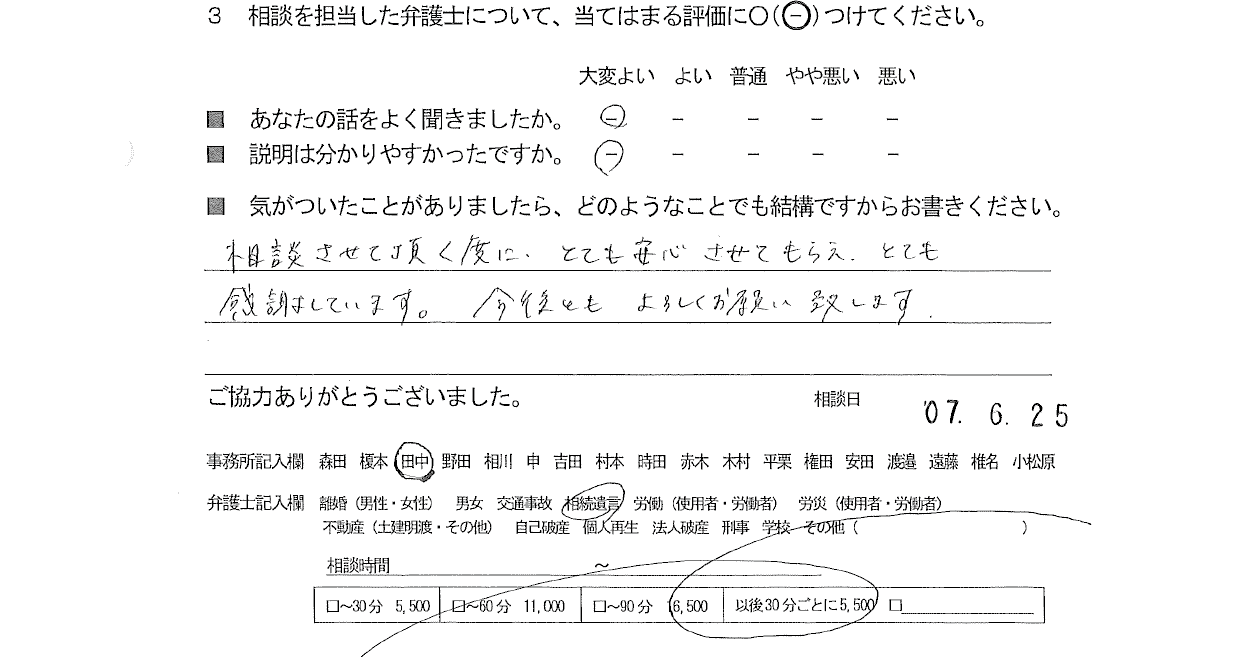 3 相談を担当した弁護士について、当てはまる評価に○(㊀)つけてください。
大変よい よい 普通 やや悪い 悪い
■ あなたの話をよく聞きましたか。 － － － － －
■ 説明は分かりやすかったですか。 － － － － －
■ 気がついたことがありましたら、どのようなことでも結構ですからお書きください。
相談させて頂く度に、とても安心させてもらえ、とても
感謝しています。今後とも よろしくお願い致します.
ご協力ありがとうございました。 相談日 '07. 6. 25
事務所記入欄 森田 榎本 田中 野田 相川 申 吉田 村本 時田 赤木 木村 平栗 権田 安田 渡邉 遠藤 椎名 小松原
弁護士記入欄 離婚（男性・女性） 男女 交通事故 相続遺言 労働（使用者・労働者） 労災（使用者・労働者）
不動産（土建明渡・その他） 自己破産 個人再生 法人破産 刑事 学校 その他（ ）
相談時間 ～
□～30分 5,500 □～60分 11,000 □～90分 16,500 以後30分ごとに5,500 □